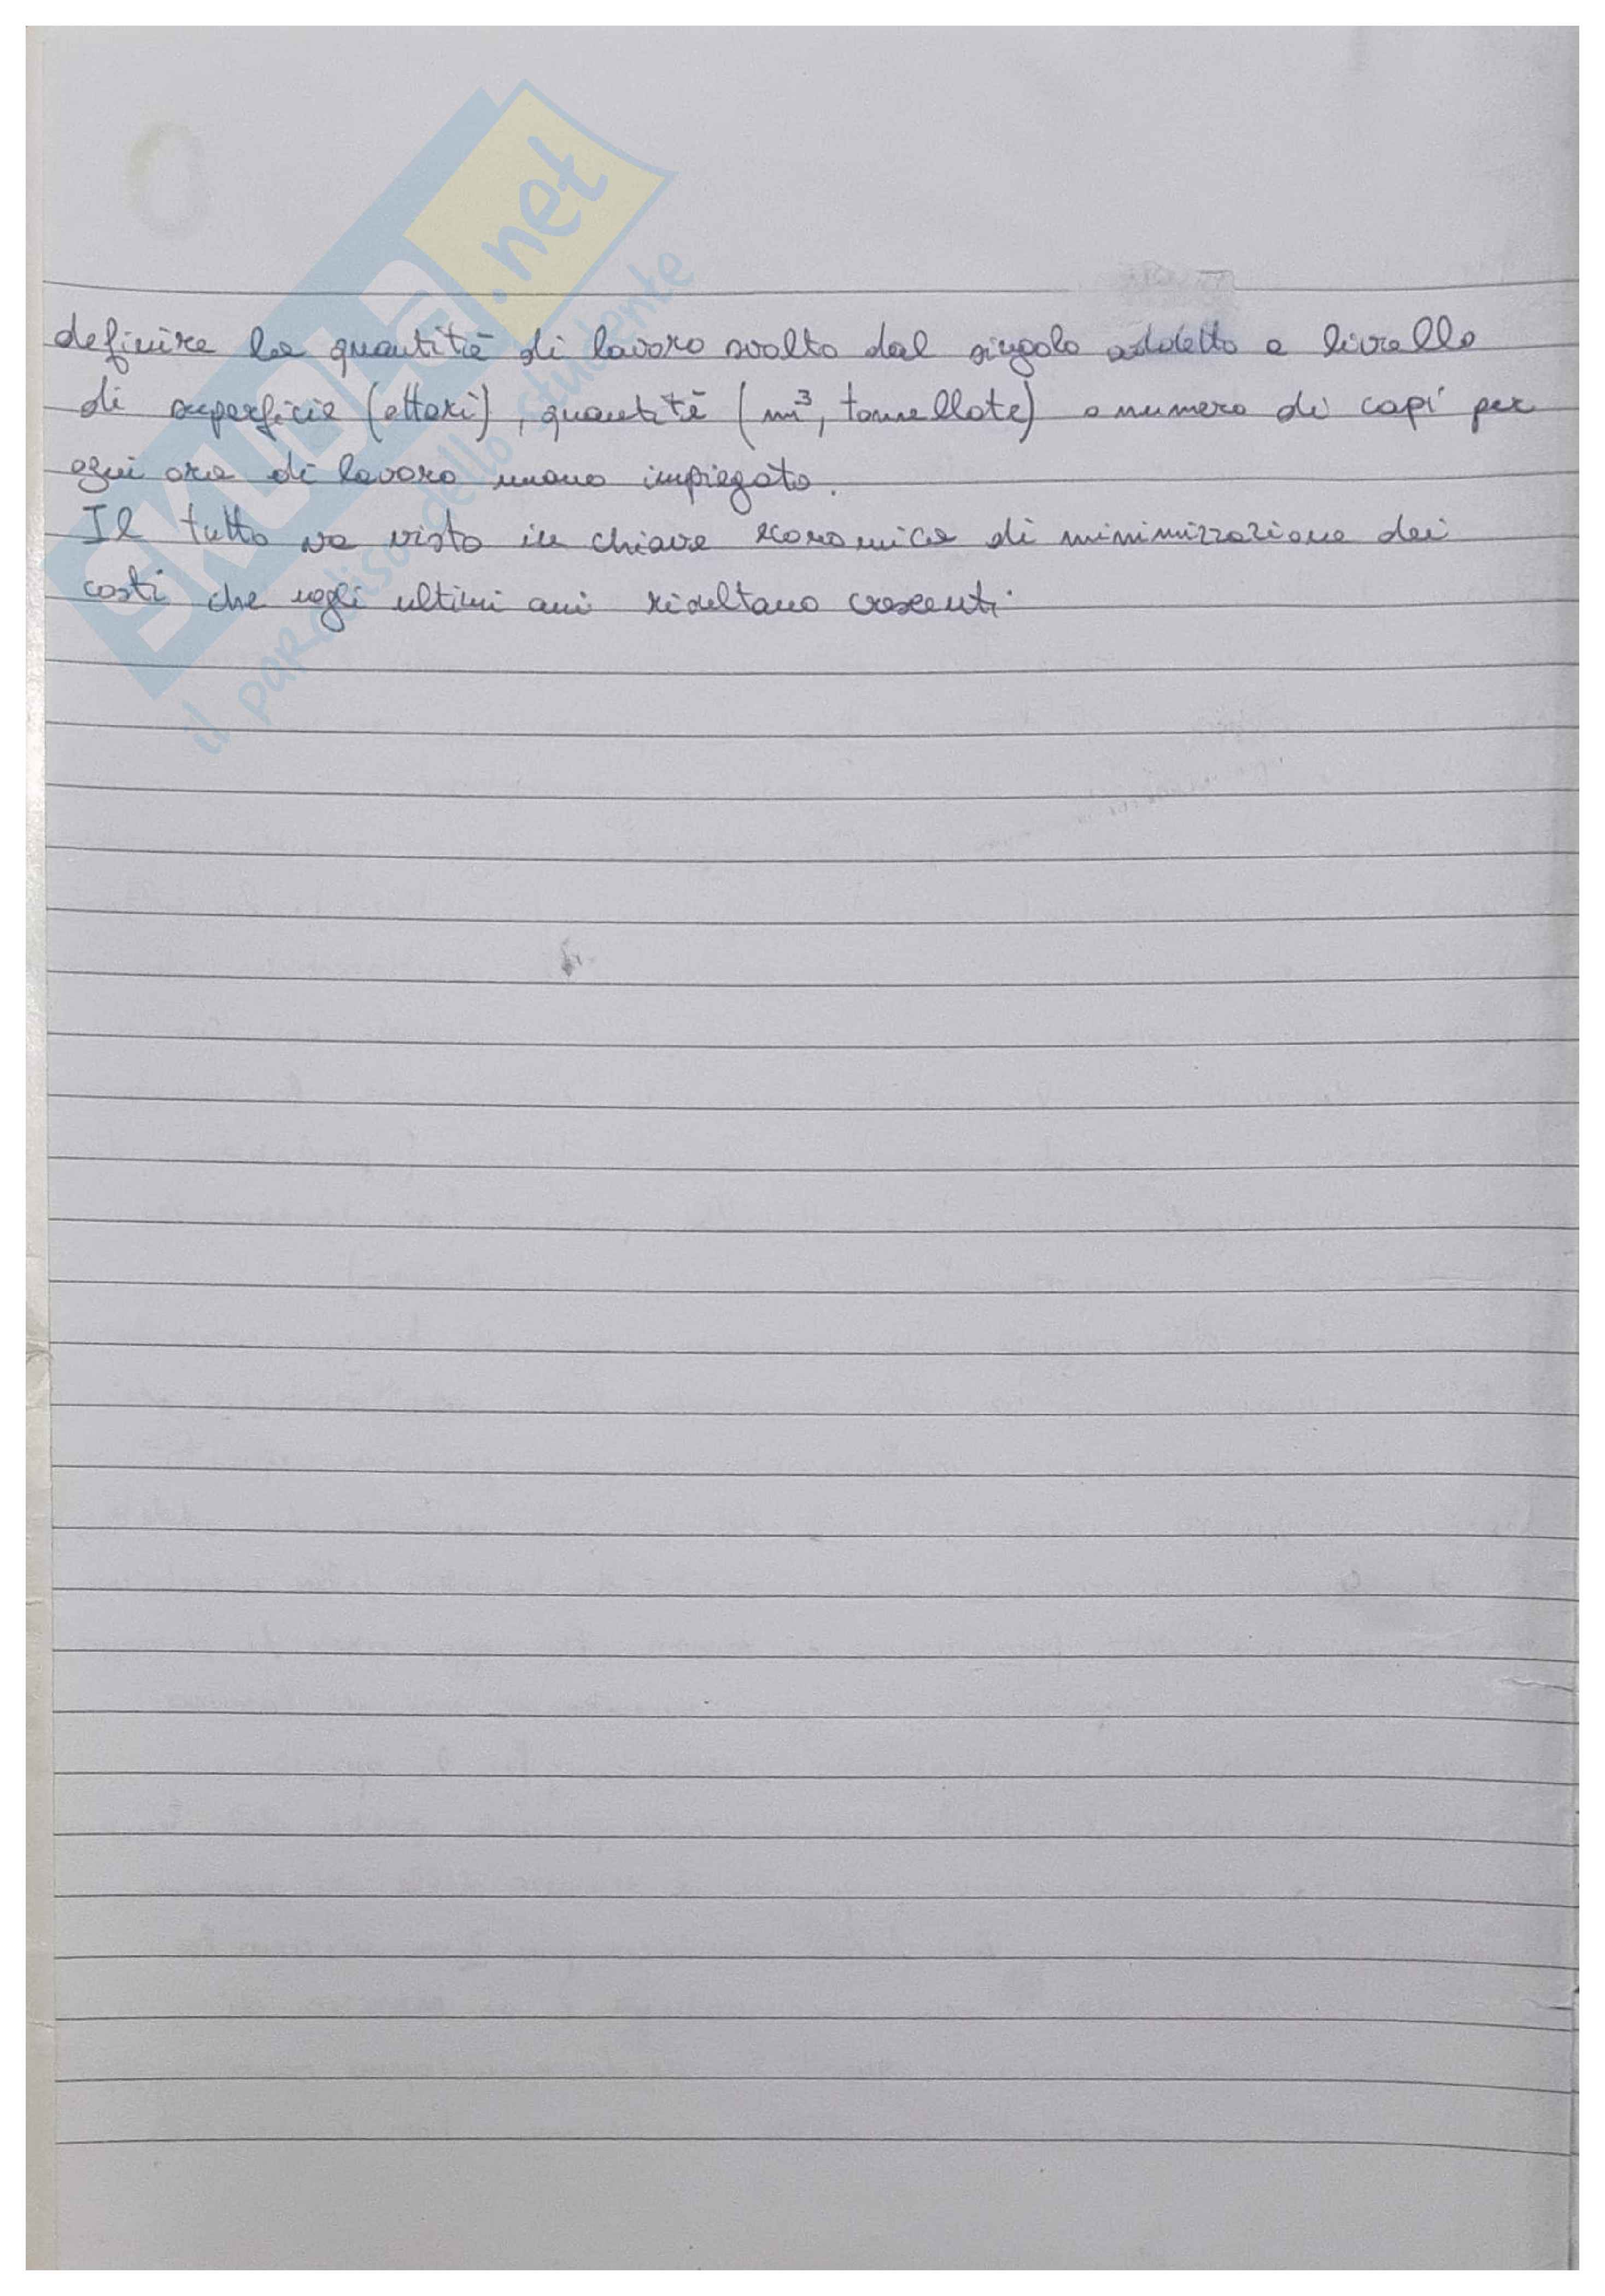 SKUOLA.net
il paradiso dello studente
definire la quantità di lavoro svolto dal singolo addetto a livello
di superficie (ettari), quantità (m³, tonnellate) o numero di capi per
ogni ora di lavoro umano impiegato.
Il tutto va visto in chiave economica di minimizzazione dei
costi che negli ultimi anni risultano crescenti.